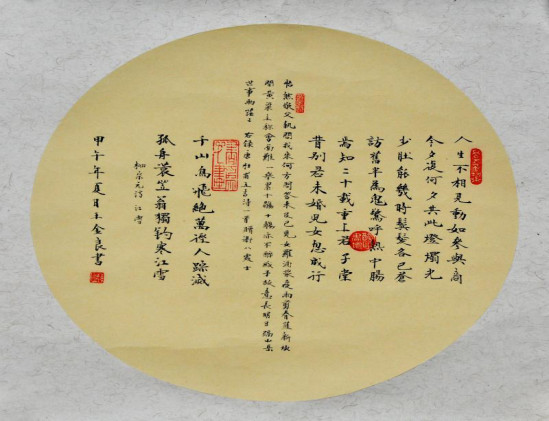 人生不相見動如參與商
今夕復何夕共此燈燭光
少壯能幾時鬢髮各已蒼
訪舊半為鬼驚呼熱中腸
焉知二十載重上君子堂
昔別君未婚兒女忽成行
怡然敬父執問我來何方問答未及已兒女羅酒漿夜雨剪春韭新炊
間黃粱主稱會面難一舉累十觴十觴亦不醉感子故意長明日隔山岳
世事兩茫々 右錄唐杜甫五言詩一首贈衛八處士
千山鳥飛絕萬徑人蹤滅
孤舟蓑笠翁獨釣寒江雪
柳宗元詩江雪
甲午年夏月王金良書